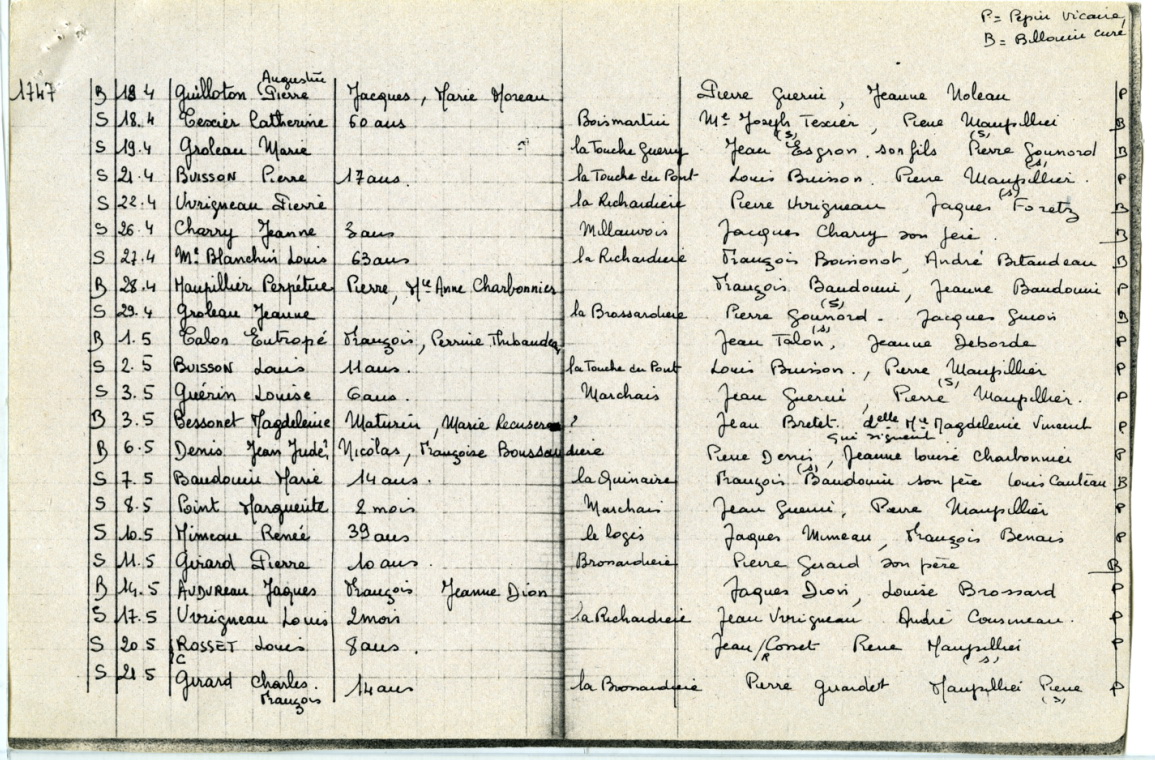 P = Pepin vicaire,
B = Billouin curé
Augustin
1747 B 18.4 Guilloton Pierre Jacques, Marie Moreau Pierre Guerin, Jeanne Noleau P
S 18.4 Texier Catherine 60 ans Boismartin Me Joseph Texier, Pierre Maupillier B
(S) (S)
S 19.4 Groleau Marie la Touche Guerry Jean Esgron son fils Pierre Gounord B
(S)
S 21.4 BUISSON Pierre 17 ans. la Touche du Pont Louis Buisson. Pierre Maupillier. P
(S)
S 22.4 Uvrigneau Pierre la Richardiere Pierre Uvrigneau Jaques Foretz B
S 26.4 Charry Jeanne 3 ans Millauvois Jacques Charry son père. B
S 27.4 Me Blanchin Louis 63 ans la Richardiere François Boisonot, André Bitaudeau B
B 28.4 Maupillier Perpétue Pierre, Me Anne Charbonnier François Baudouin, Jeanne Baudouin P
(S)
S 29.4 Groleau Jeanne la Brossardiere Pierre Gounord. Jacques Guion B
(s)
B 1.5 Talos Eutropé François, Perrine Thibaudeau Jean Talon, Jeanne Deborde P
S 2.5 BUISSON Louis 11 ans. la Touche du Pont Louis Buisson., Pierre Maupillier P
(S)
S 3.5 Guérin Louise 6 ans. Marchais Jean Guerin, Pierre Maupillier. P
B 3.5 Bessonet Magdeleine Maturin, Marie ? Jean Bretet. delle Me Magdelenie Vincent P
qui signent
B 6.5 Denis Jean Judé Nicolas, Françoise Boussaudiere Pierre Denis, Jeanne Louise Charbonnier P
(S)
S 7.5 Baudouin Marie 14 ans. la Quinaire François Baudouin son père Louis Cauteau B
S 8.5 Point Marguerite 2 mois Marchais Jean Guerin, Pierre Maupillier P
S 10.5 Mimeau Renée 39 ans le logis Jaques Mimeau, François Benais P
S 11.5 Girard Pierre 10 ans. Brossardiere Pierre Girard son père B
B 14.5 AUDUREAU Jaques François Jeanne Dion Jaques Dion, Louise Brossard P
S 17.5 Uvrigneau Louis 2 mois la Richardiere Jean Uvrigneau André Cousineau. P
S 20.5 ROSSET Louis 8 ans. Jean / Cosset Pierre Maupillier P
C R (S)
S 21.5 Girard Charles. 14 ans la Brossardiere Pierre Girardet Maupillier Pierre P
François (S)